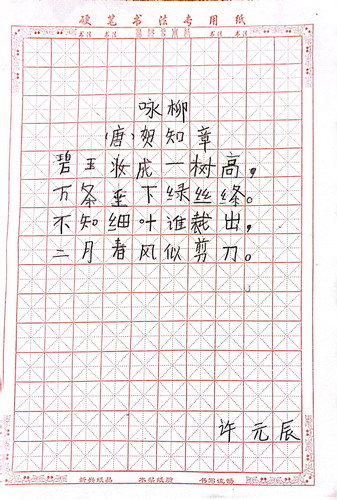 硬笔书法专用纸
书法 书法 书法 书法
咏柳
（唐）贺知章
碧玉妆成一树高，
万条垂下绿丝绦。
不知细叶谁裁出，
二月春风似剪刀。
许元辰